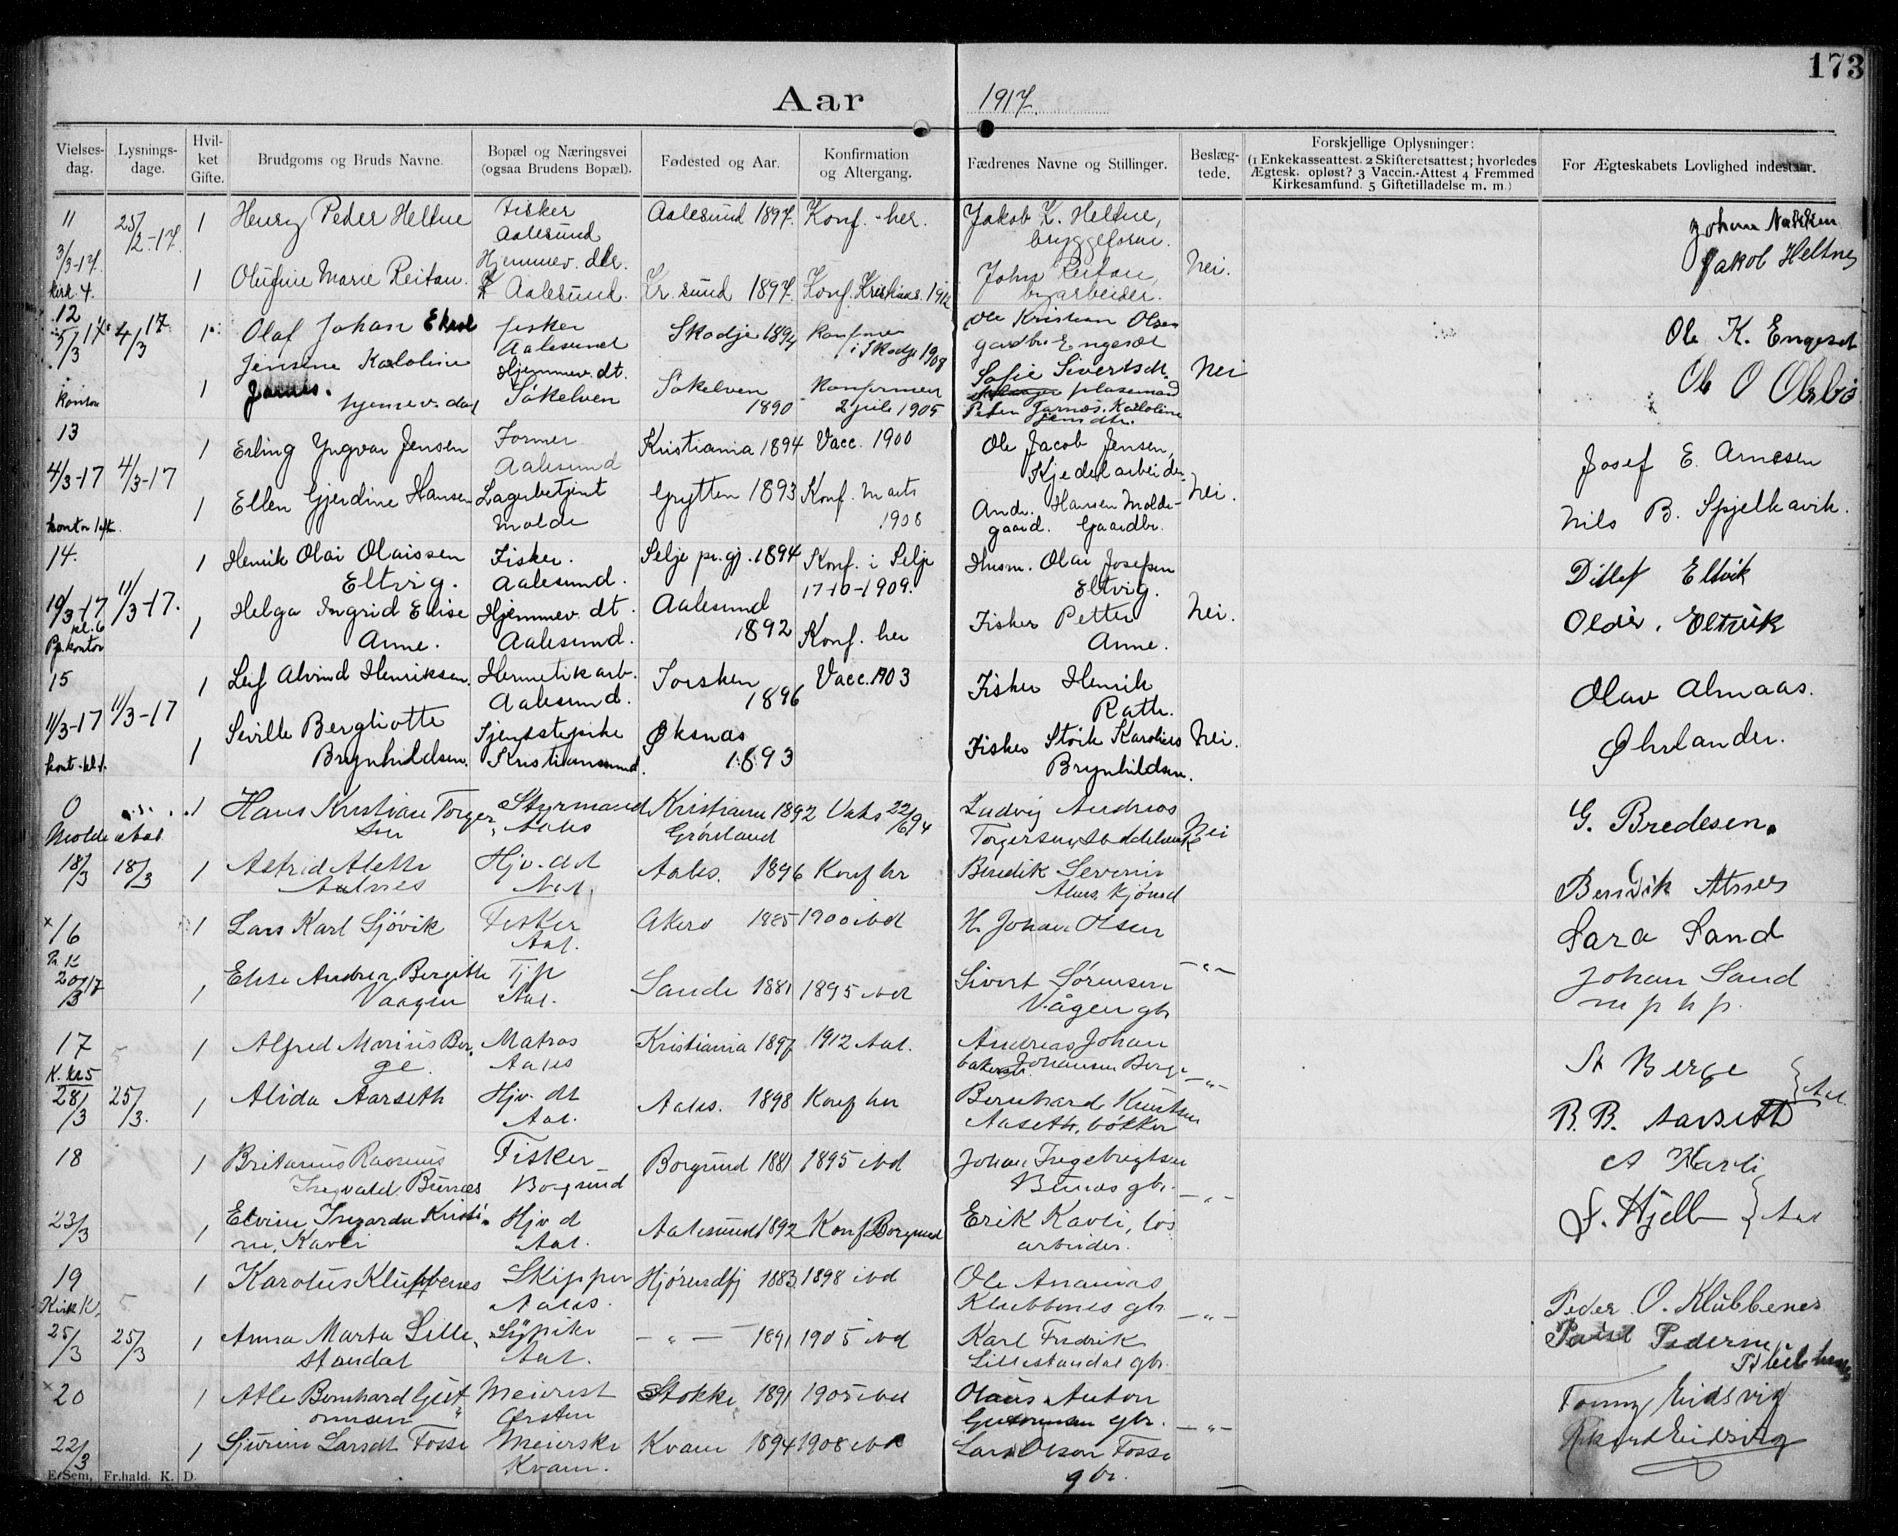 173
Aar 1917.
Vielses-dag. Lysnings-dage. Hvil-ket Gifte. Brudgoms og Bruds Navne. Bopæl og Næringsvei (ogsaa Brudens Bopæl). Fødested og Aar. Konfirmation og Altergang. Fædrenes Navne og Stillinger. Beslæg-tede. Forskjellige Oplysninger: (1 Enkekasseattest. 2 Skifteretsattest; hvorledes Ægtesk. opløst? 3 Vaccin.-Attest 4 Fremmed Kirkesamfund. 5 Giftetilladelse m. m.) For Ægteskabets Lovlighed indestaar.
11 25/2-17. 1 Henry Peder Heltne Fisker Aalesund 1897. Konf. her. Jakob K. Heltne, Johan
3/3-17. Aalesund bryggeform. Jakob Heltne
Hjemmev. dtr. Nei.
kirk. 4. 1 Olufine Marie Reitan. Aalesund. Kr.sund 1897. Konf. Kristians. 1912 John Reitan, byarbeider.
12
5/3 17 4/3 17 1 Olaf Johan fisker Skodje 1894 konfirmer i Skodje 1908 Ole Kristian Olsen Ole K. Engeset
Aalesund gardbr. Engeset
Jensine Karoline Hjemmev. dt. Sofie Sivertsdt. Nei Ole O
kontor 1 Jarnes. hjemev. dat Søkelven Søkelven 1890 konfirmer 2 juli 1905 plasemand Peter Jarnes. Karoline Jensdtr.
13 1 Erling Yngvar Jensen Former Kristiania 1894 Vacc. 1900 Ole Jacob Jensen, Josef E. Arnesen
4/3-17 4/3-17 Aalesund Kjedelarbeider
kontor 1 Ellen Gjerdine Hansen Lagerbetjent Molde Grytten 1893 Konf. Marts 1908 Andr. Hansen Molde-gaard. Gaardbr. Nei. Nils B. Spjelkavik.
14. 1 Henrik Olai Olaissen Fisker. Selje pr.gj. 1894 Konf. i Selje Husm. Olai Josefsen Ditlef Eltvik
10/3-17 11/3-17. Eltvig. Aalesund. 17-10-1909. Eltvig.
kl. 6 1 Helga Ingrid Elise Hjemmev. dt. Aalesund Fisker Petter Nei. Olai. Eltvik
Pp. kontor Anne. Aalesund. 1892 Konf. her Anne.
15 1 Leif Alvind Henriksen. Hermetikarb. Torsken Vacc. 1903 Fisker Henrik Olav Almaas.
11/3-17 11/3-17 Aalesund. 1896 Rath.
1 Sirille Bergliotte Tjenestepike Øksnes Fisker Karolius Nei. Øhrlander.
kont. Brynhildsen. Kristiansund. 1893 Brynhildsen.
0 1 Hans Kristian Torger Styrmand Kristiania 1892 Vaks 22/6 94 Ludvig Andreas G. Bredesen.
Molde sen Aales Grønland Torgersen, Nei
18/3 18/3 1 Astrid Alette Hjv. dat Aales. 1896 Konf her Benedik Severin Bendik Alnes
Alnes Aal. Alnes, kjømd
16 1 Lars Karl Sjövik Fisker Akerø 1885 1900 ibd H. Johan Olsen Sara Sand
Pr. K Aal.
20/3 17 1 Elise Andrea Bergitte Tjp Sande 1881 1895 ibd Sivert Sørensen -"- Johan Sand
Vaagen Aal. Vågen gbr m p h p.
17 1 Alfred Marius Ber, Matros Kristiania 1897 1912 Aal. Andreas Johan A Berge
K. Kl 5 ge Aales Johansen Berge -"-
28/3 25/3. 1 Alida Aarseth Hjv. dt Aales. 1898 Konf her Bernhard Knutsen B. B. Aarseth } Aal.
Aal. Aaseth, bøkker
18 1 Britanus Rasmus Fisker Borgund 1881 1895 ibd Johan Ingebrigtsen A Kavli
Ingvald Bunes Borgund Bunes gbr. -"-
23/3 1 Elvine Ingarda Kristi Hjv. d Aalesund 1892 Konf Borgund Erik Kavli, løs J. Hjelle } Aal
ne, Kavli Aal. arbeider.
19 1 Karolus Klubbenes Skipper Hjørundfj 1883 1898 ibd Ole Ananias Peder O. Klubbenes
Kirk K, Aales. Klubbenes gbr -"-
25/3 25/3 1 Anna Marta Lille Tjpike -"- 1891 1905 ibd Karl Fredrik Pedersen
standal Aal. Lillestandal gbr.
20 1 Atle Bernhard Gutt Meierist Stokke 1891 1905 ibd Olaus Anton Eidsvig
ormsen Ørsten Guttormsen gbr. -"-
22/3 1 Sjurine Larsdt Fosse Meierske Kvam 1894 1908 ibd Lars Olson Fosse Eidsvig
Kvam. gbr.
E. Sem, Fr.hald. K. D.